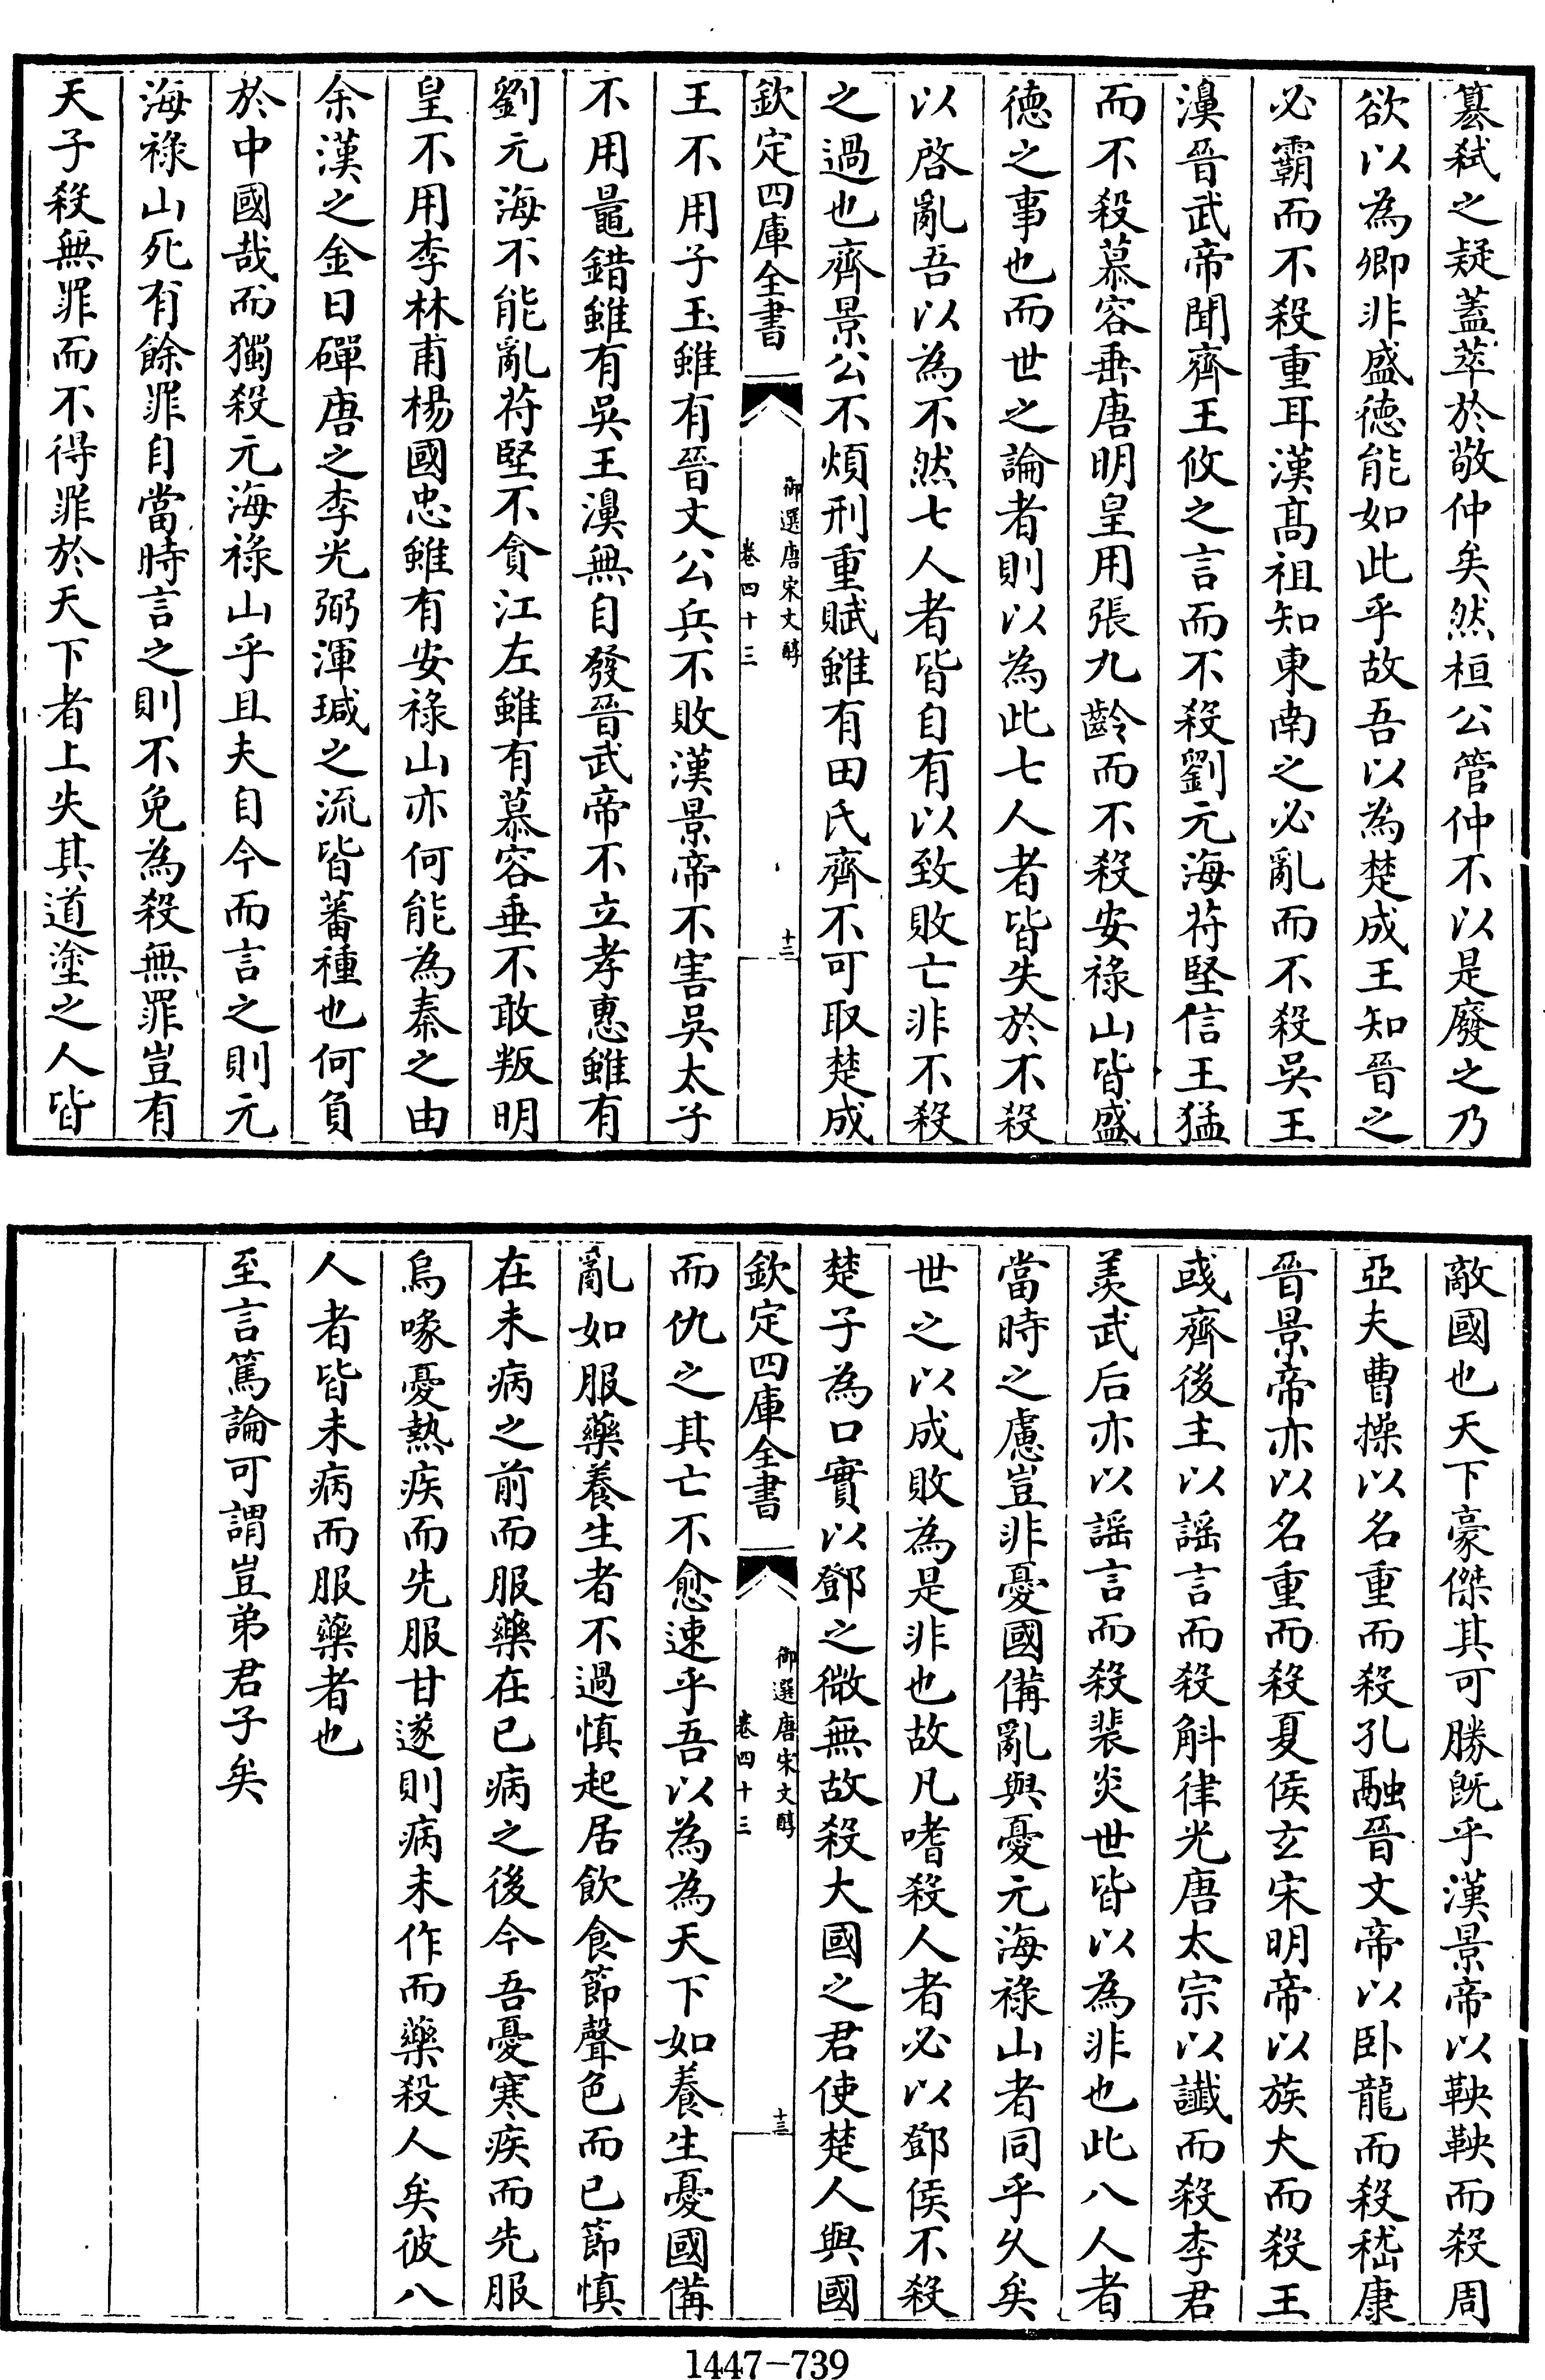 簒弑之疑蓋萃於敬仲矣然桓公管仲不以是廢之乃
欲以為卿非盛徳能如此乎故吾以為楚成王知晉之
必霸而不殺重耳漢髙祖知東南之必亂而不殺吳王
濞晉武帝聞齊王攸之言而不殺劉元海苻堅信王猛
而不殺慕容垂唐明皇用張九齡而不殺安禄山皆盛
徳之事也而世之論者則以為此七人者皆失於不殺
以啓亂吾以為不然七人者皆自有以致敗亡非不殺
之過也齊景公不煩刑重賦雖有田氏齊不可取楚成
欽定四庫全書
御選唐宋文醇
卷四十三
十二
王不用子玉雖有晉文公兵不敗漢景帝不害吳太子
不用鼂錯雖有吳王濞無自發晉武帝不立孝惠雖有
劉元海不能亂苻堅不貪江左雖有慕容垂不敢叛明
皇不用李林甫楊國忠雖有安祿山亦何能為秦之由
余漢之金日磾唐之李光弼渾瑊之流皆蕃種也何負
於中國哉而獨殺元海祿山乎且夫自今而言之則元
海祿山死有餘罪自當時言之則不免為殺無罪豈有
天子殺無罪而不得罪於天下者上失其道塗之人皆
敵國也天下豪傑其可勝既乎漢景帝以鞅鞅而殺周
亞夫曹操以名重而殺孔融晉文帝以卧龍而殺嵇康
晉景帝亦以名重而殺夏侯玄宋明帝以族大而殺王
彧齊後主以謡言而殺斛律光唐太宗以讖而殺李君
羨武后亦以謡言而殺裴炎世皆以為非也此八人者
當時之慮豈非憂國備亂與憂元海祿山者同乎久矣
世之以成敗為是非也故凡嗜殺人者必以鄧侯不殺
楚子為口實以鄧之微無故殺大國之君使楚人與國
欽定四庫全書
御選唐宋文醇
卷四十三
十三
而仇之其亡不愈速乎吾以為為天下如養生憂國備
亂如服藥養生者不過慎起居飲食節聲色而已節慎
在未病之前而服藥在已病之後今吾憂寒疾而先服
烏喙憂熱疾而先服甘遂則病未作而藥殺人矣彼八
人者皆未病而服藥者也
至言篤論可謂豈弟君子矣
1447-739